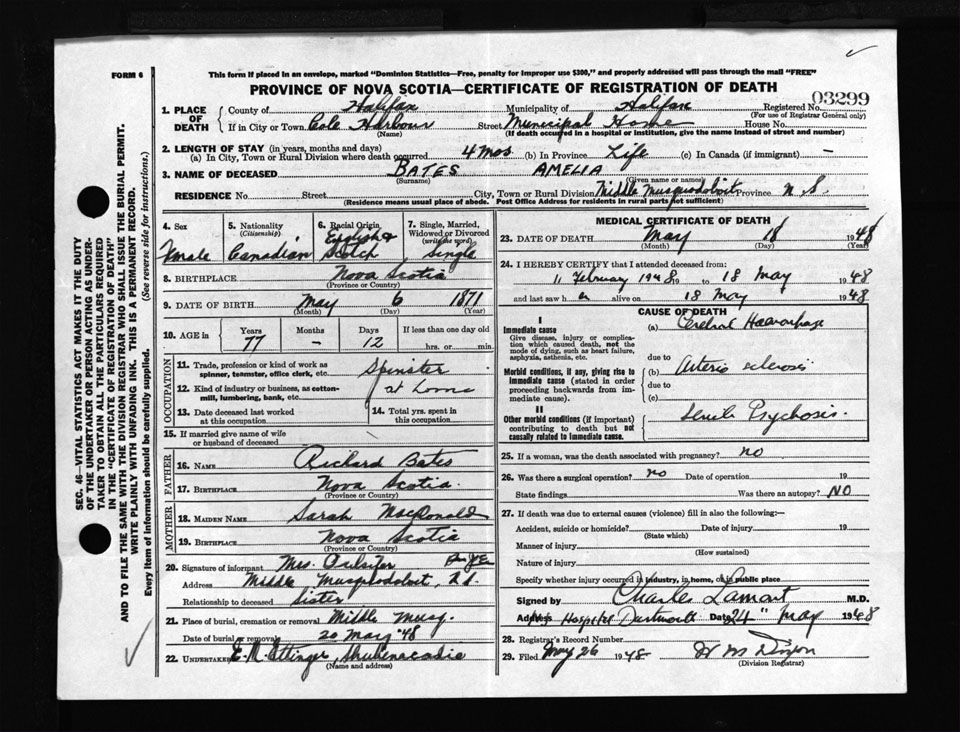 FORM 6
This form if placed in an envelope, marked "Dominion Statistics—Free, penalty for improper use $300," and properly addressed will pass through the mail "FREE"
PROVINCE OF NOVA SCOTIA—CERTIFICATE OF REGISTRATION OF DEATH
1. PLACE OF DEATH County of Halifax Municipality of Halifax Registered No. 03299
(For use of Registrar General only)
If in City or Town Cole Harbour Street Municipal Home House No.
(Name) (If death occurred in a hospital or institution, give the name instead of street and number)
2. LENGTH OF STAY (in years, months and days)
(a) In City, Town or Rural Division where death occurred 4 mos (b) in Province Life (c) In Canada (if immigrant) —
3. NAME OF DECEASED BATES AMELIA
(Surname) (Given name or names)
RESIDENCE No. Street City, Town or Rural Division Middle Musquodoboit Province N.S.
(Residence means usual place of abode. Post Office Address for residents in rural parts not sufficient)
4. Sex 5. Nationality (Citizenship) 6. Racial Origin 7. Single, Married, Widowed or Divorced (write the word)
Female Canadian English & Scotch Single
8. BIRTHPLACE Nova Scotia
(Province or Country)
9. DATE OF BIRTH May 6 1871
(Month) (Day) (Year)
10. AGE in Years Months Days If less than one day
77 — 12 hrs. or min.
OCCUPATION
11. Trade, profession or kind of work as spinner, teamster, office clerk, etc. Spinster
12. Kind of industry or business, as cotton-mill, lumbering, bank, etc. at home
13. Date deceased last worked at this occupation 14. Total yrs. spent in this occupation
15. If married give name of wife or husband of deceased
FATHER
16. NAME Richard Bates
17. BIRTHPLACE Nova Scotia
(Province or Country)
MOTHER
18. MAIDEN NAME Sarah MacDonald
19. BIRTHPLACE Nova Scotia
(Province or Country)
20. Signature of informant Mrs.
Address Middle Musquodoboit,
Relationship to deceased Sister
21. Place of burial, cremation or removal Middle Musq.
Date of burial or removal 20 May '48
22. UNDERTAKER E. M. Ettinger, Shubenacadie
(Name and address)
MEDICAL CERTIFICATE OF DEATH
23. DATE OF DEATH May 18 1948
(Month) (Day) (Year)
24. I HEREBY CERTIFY that I attended deceased from:
11 February 1948 to 18 May 1948
and last saw her alive on 18 May 1948
CAUSE OF DEATH
I
Immediate cause (a) Cerebral Haemorrhage
Give disease, injury or complication which caused death, not the mode of dying, such as heart failure, asphyxia, asthenia, etc.
due to
Morbid conditions, if any, giving rise to immediate cause (stated in order proceeding backwards from immediate cause). (b) Arterio sclerosis
due to
(c)
II
Other morbid conditions (if important) contributing to death but not causally related to immediate cause. Senile Psychosis.
25. If a woman, was the death associated with pregnancy? no
26. Was there a surgical operation? no Date of operation 19
State findings Was there an autopsy? NO
27. If death was due to external causes (violence) fill in also the following:—
Accident, suicide or homicide? Date of injury 19
(State which)
Manner of injury
(How sustained)
Nature of injury
Specify whether injury occurred in industry, in home, or in public place
Signed by Charles Lamont M.D.
Address Hospital Dartmouth Date 24" May 1948
28. Registrar's Record Number
29. Filed May 26 1948 W M Dixon
(Division Registrar)
SEC. 46—VITAL STATISTICS ACT MAKES IT THE DUTY
OF THE UNDERTAKER OR PERSON ACTING AS UNDER-
TAKER TO OBTAIN ALL THE PARTICULARS REQUIRED
IN THE "CERTIFICATE OF REGISTRATION OF DEATH"
AND TO FILE THE SAME WITH THE DIVISION REGISTRAR WHO SHALL ISSUE THE BURIAL PERMIT.
WRITE PLAINLY WITH UNFADING INK. THIS IS A PERMANENT RECORD.
Every item of information should be carefully supplied. (See reverse side for instructions.)